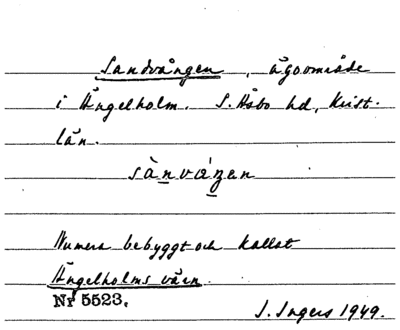 Sandvången, ägoområde
i Ängelholm. S. Åsbo hd, Krist.
län.
sànváŋen
Numera bebyggt och kallat
Ängelholms våen.
Nr 5523.
I. Ingers 1949.